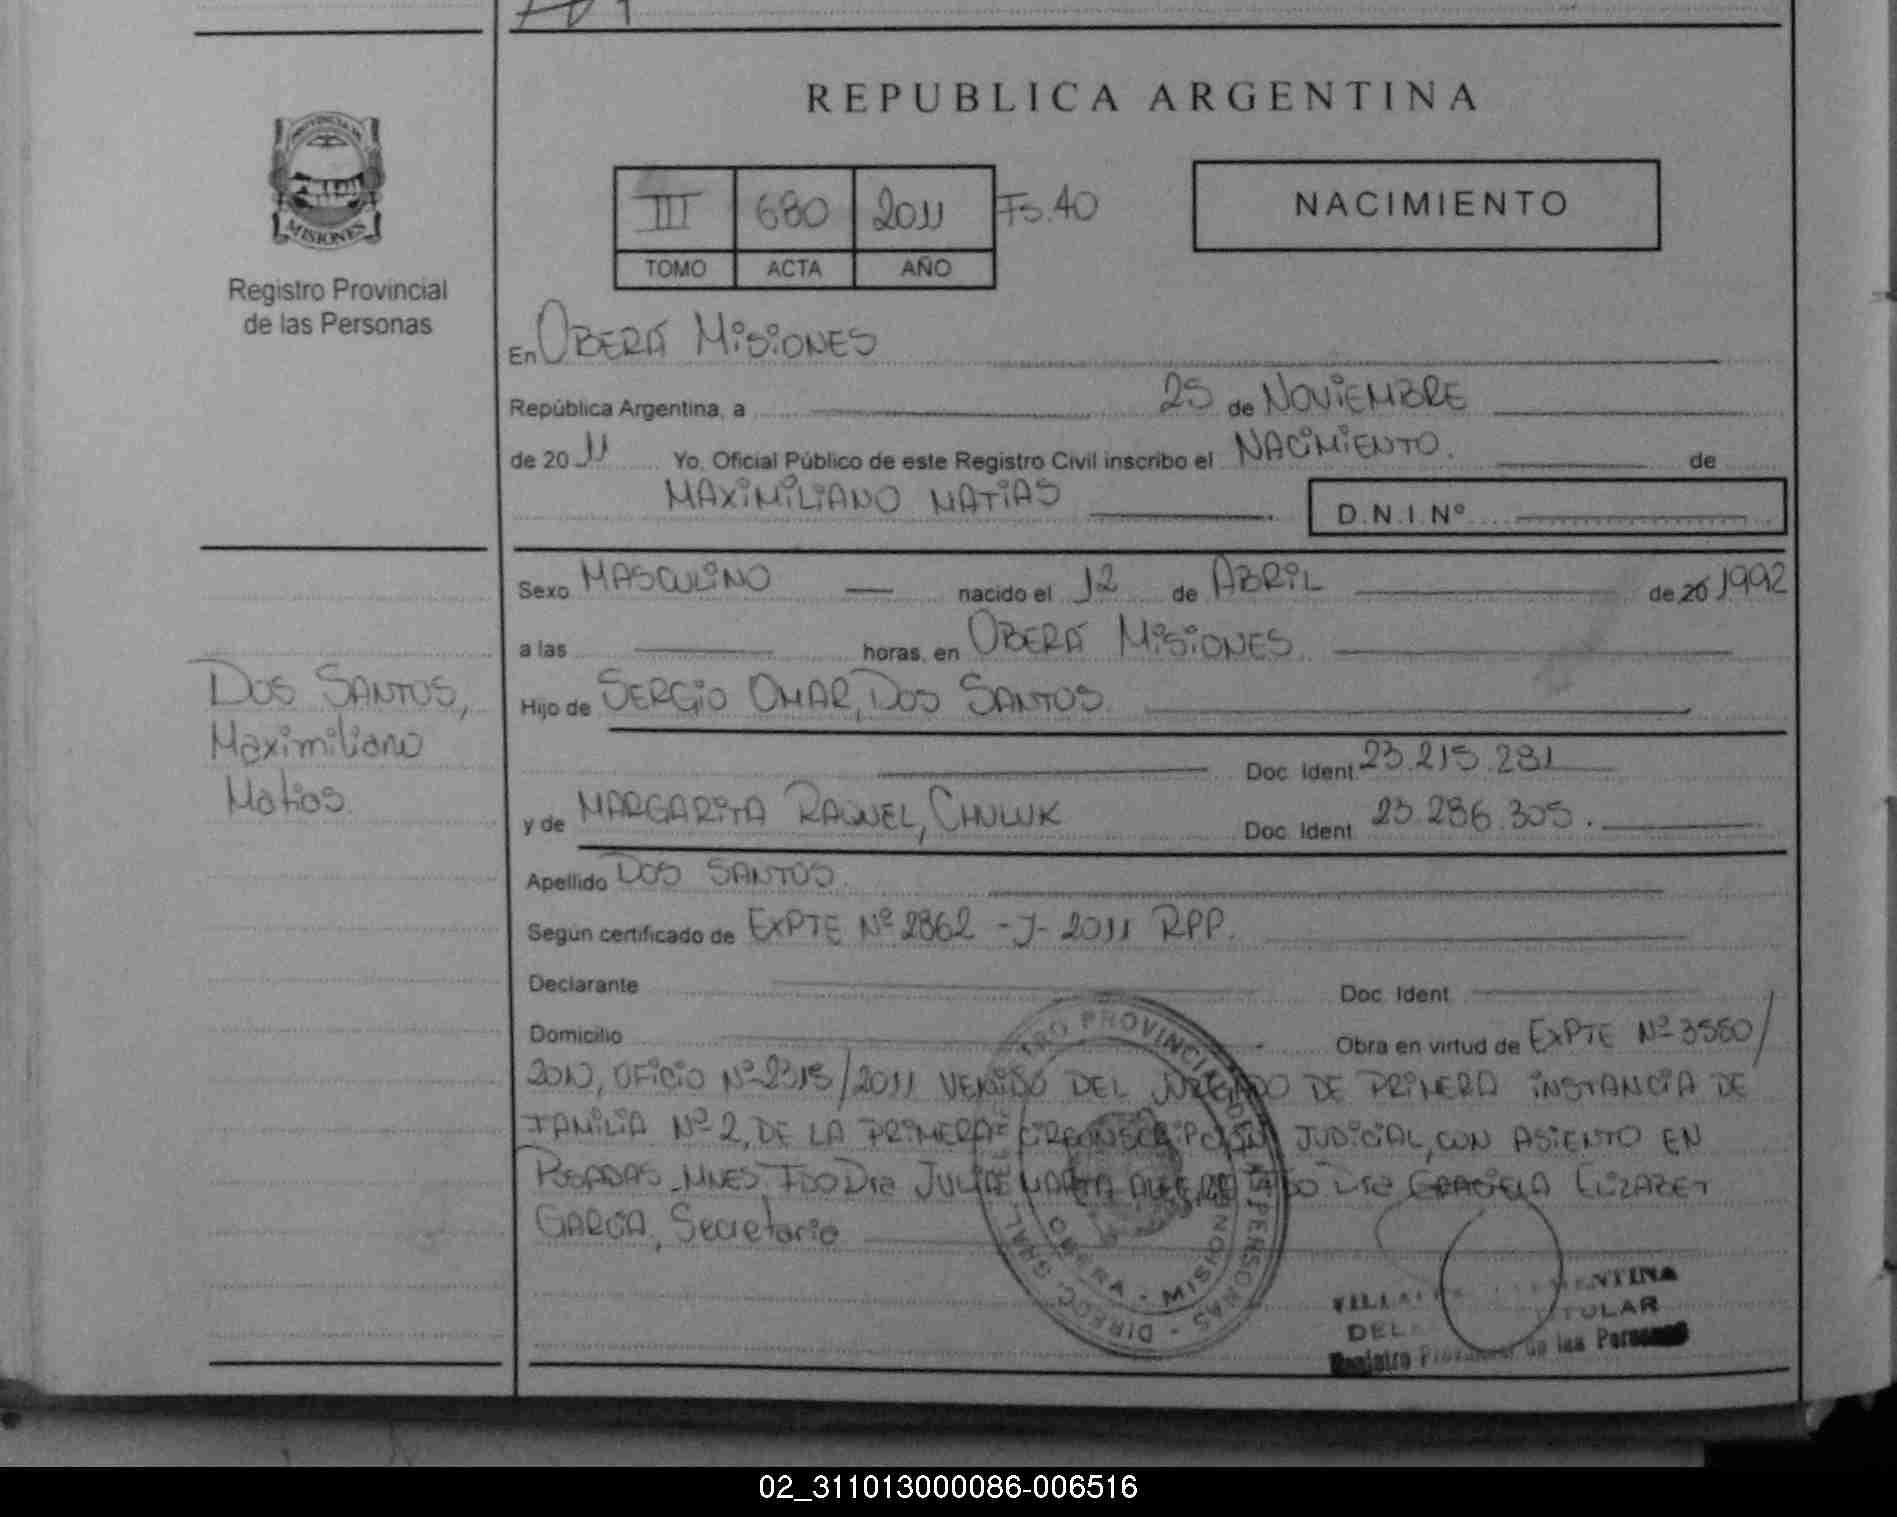 REPUBLICA ARGENTINA
PROVINCIA DE
MISIONES
Registro Provincial
de las Personas
III 680 2011 Fs. 40
TOMO ACTA AÑO
NACIMIENTO
En OBERÁ MISIONES
República Argentina, a 25 de NOVIEMBRE
de 2011 Yo, Oficial Público de este Registro Civil inscribo el NACIMIENTO. de
MAXIMILIANO MATIAS D.N.I.Nº
Sexo MASCULINO nacido el 12 de ABRIL de 20 1992
a las horas, en OBERÁ MISIONES
DOS SANTOS,
Maximiliano
Matias.
Hijo de SERGIO OMAR, DOS SANTOS
Doc. Ident. 23.215.281
y de MARGARITA RAQUEL, Doc. Ident. 23.286.305.
Apellido DOS SANTOS.
Según certificado de EXPTE Nº 2862 -J- 2011 RPP.
Declarante Doc. Ident.
Domicilio Obra en virtud de EXPTE Nº 3580/
2010, OFICIO Nº 2315/2011 VENIDO DEL JUZGADO DE PRIMERA INSTANCIA DE
FAMILIA Nº 2, DE LA PRIMERA CIRCUNSCRIPCIÓN JUDICIAL, CON ASIENTO EN
POSADAS - MNES, FDO Dra JULIA MARTA ALEGRE FDO Dra GRACIELA ELIZABET
GARCIA, Secretaria
PROVINCIAL DE LAS PERSONAS - DIREC. GRAL.
OBERA - MISIONES
Registro Provincial de las Personas
02_311013000086-006516